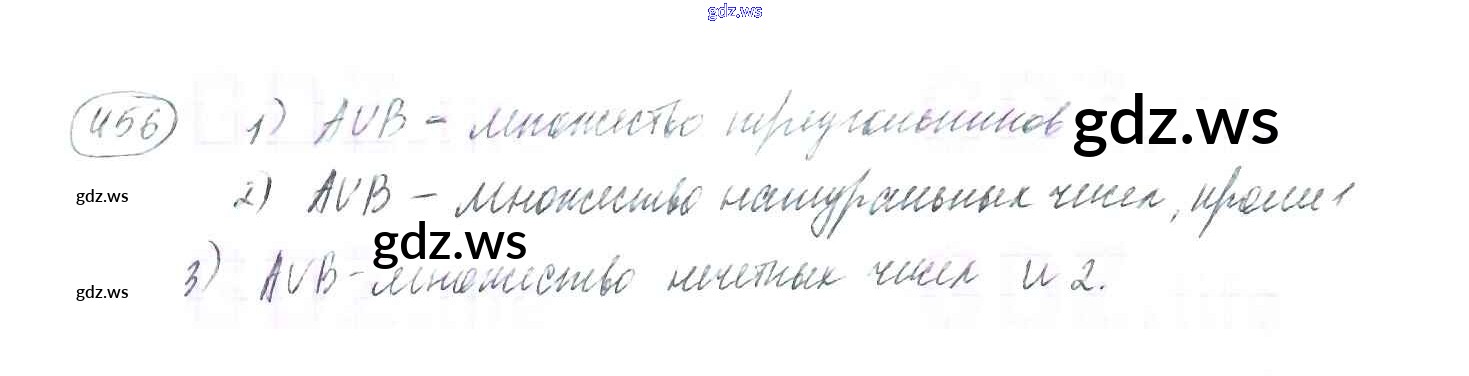 gdz.ws
456 1) АUВ - множество треугольников gdz.ws
gdz.ws 2) АUВ - множество натуральных чисел, кроме 1
gdz.ws
gdz.ws 3) АUВ - множество нечетных чисел и 2.